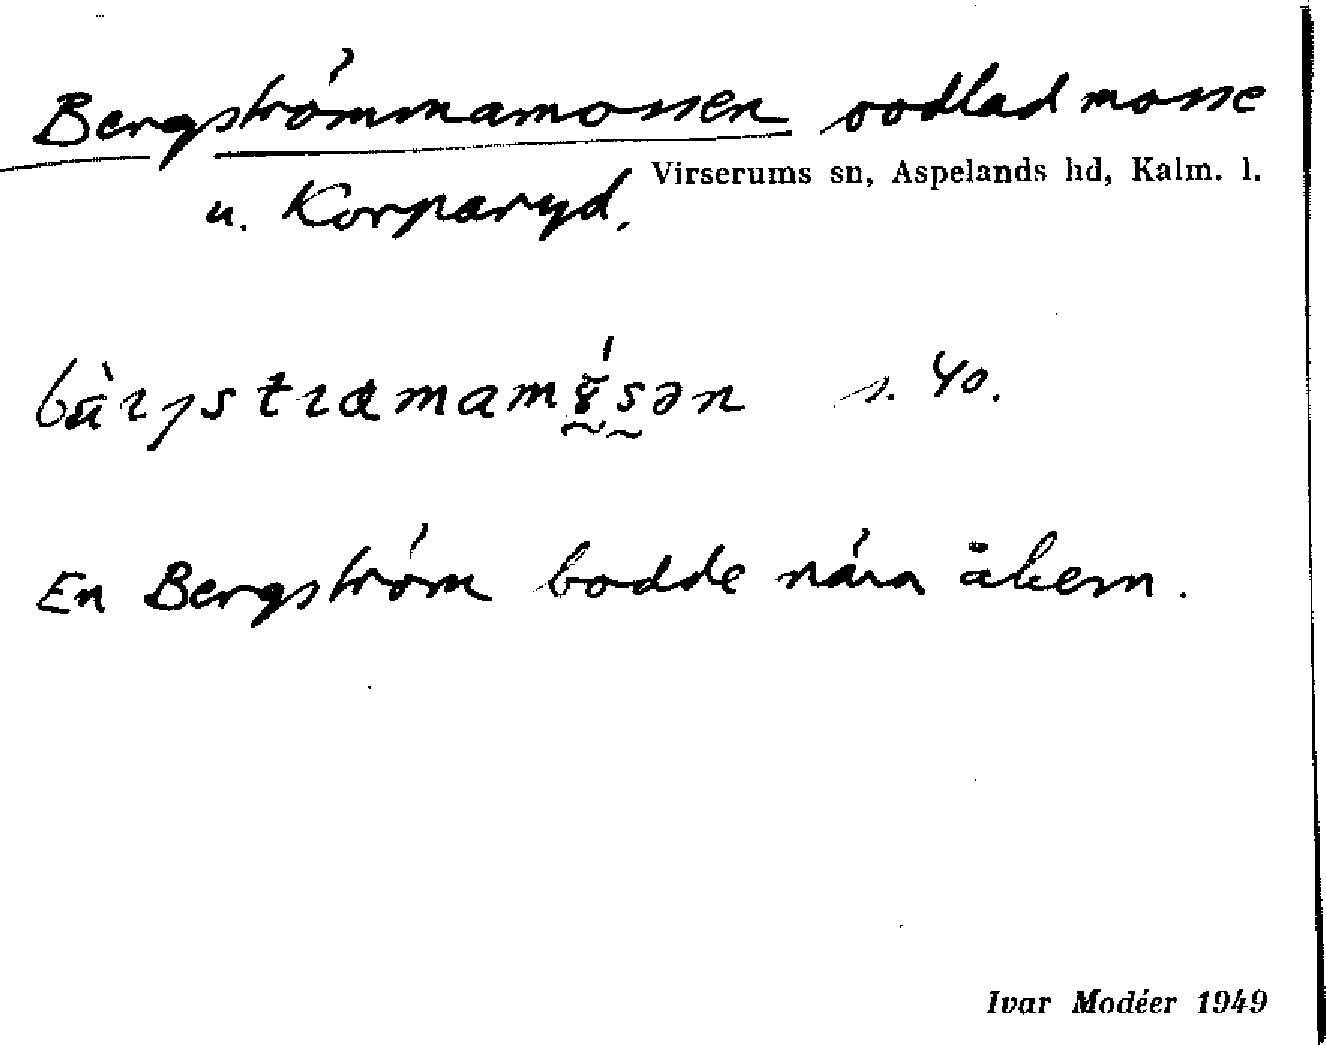 Bergströmmamossen oodlad mosse
Virserums sn, Aspelands hd, Kalm. l.
u. Korparyd.
s. 40.
En Bergström bodde nära åkern.
Ivar Modéer 1949